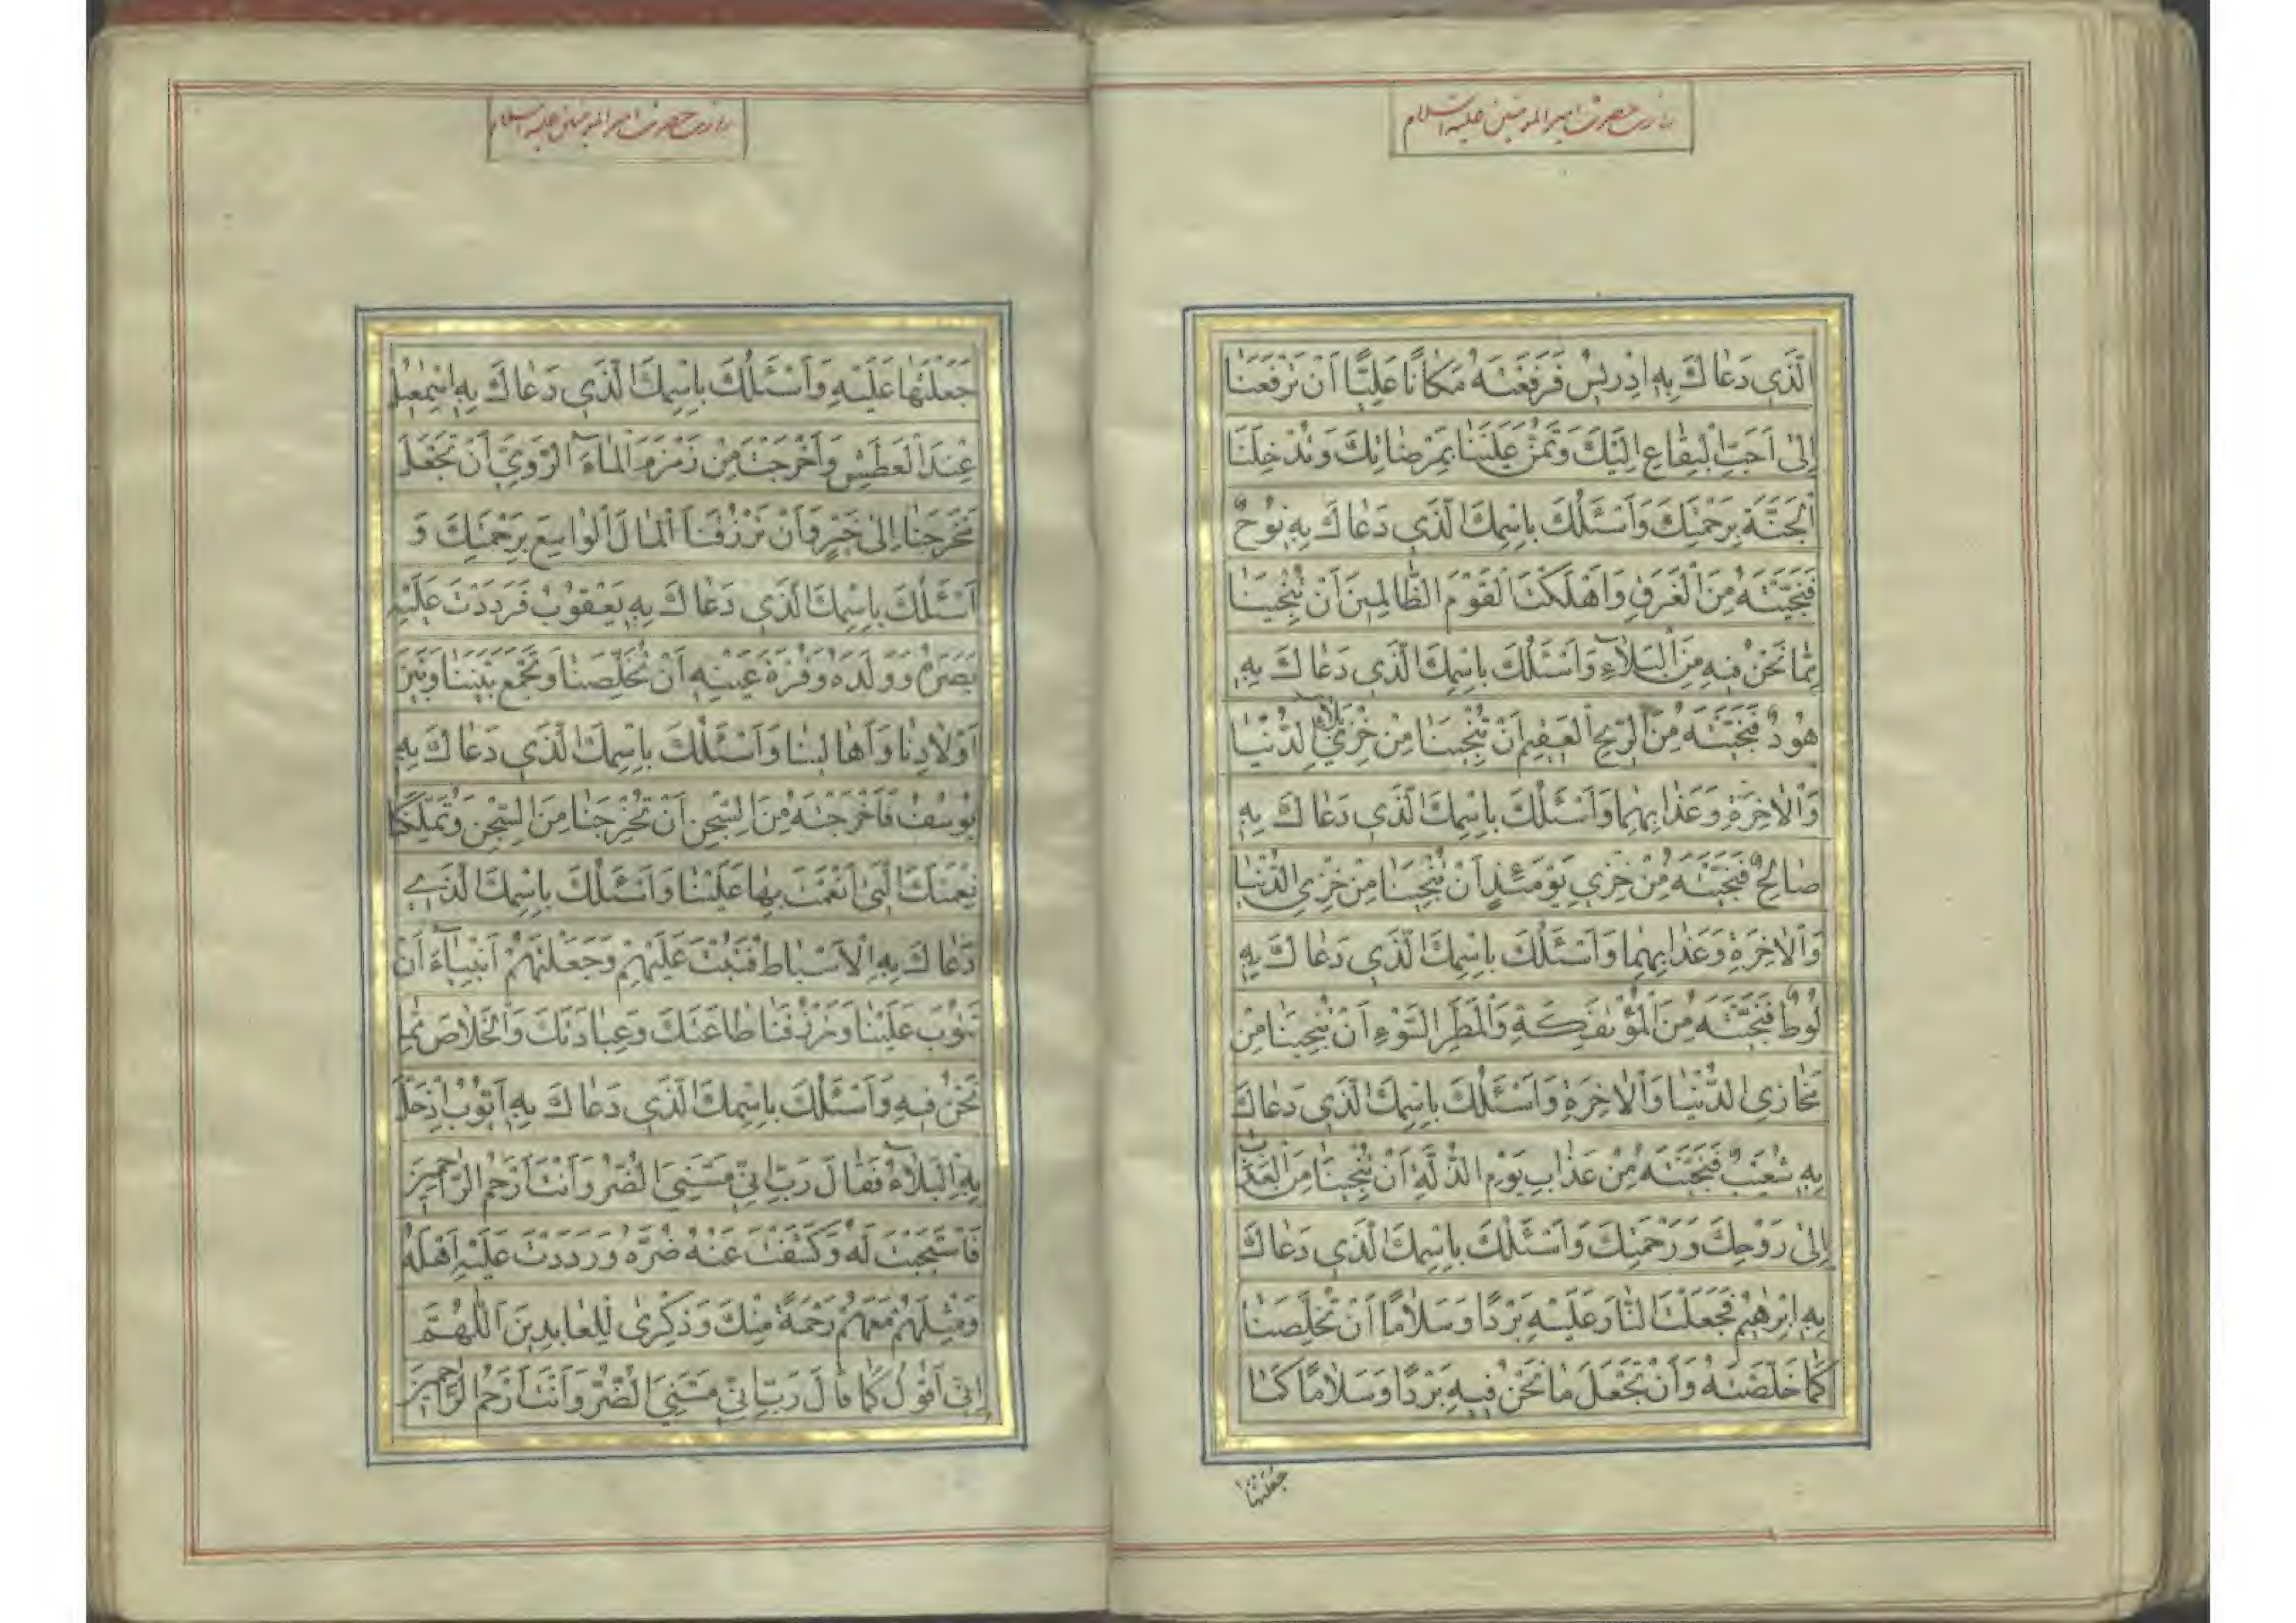 زیارت حضرت امیر المومنین علیه السلام
الَّذَي دَعٰاكَ بِهِ اِدْرِيسُ فَرَفَعْتَهُ مَكٰانًا عَلِيًّا اَنْ تَرْفَعَنٰا
اِلىٰ اَحَبِّ الْبِقٰاعِ اِلَيْكَ وَتَمُنَّ عَلَيْنٰا بِمَرْضٰاتِكَ وَتُدْخِلَنَا
الْجَنَّةَ بِرَحْمَتِكَ وَاَسْئَلُكَ بِاسْمِكَ الَّذَي دَعٰاكَ بِهِ نُوحٌ
فَنَجَّيْتَهُ مِنَ الْغَرَقِ وَاَهْلَكْتَ الْقَوْمَ الظّٰالِمِينَ اَنْ تُنْجِيَنٰا
مِمّٰا نَحْنُ فِيهِ مِنَ الْبَلٰاۤءِ وَاَسْئَلُكَ بِاسْمِكَ الَّذَي دَعٰاكَ بِهِ
هُودٌ فَنَجَّيْتَهُ مِنَ الرِّيحِ الْعَقِيمِ اَنْ تُنْجِيَنٰا مِنْ خِزْيِ بَلٰاۤءِ الدُّنْيٰا
وَالْاٰخِرَةِ وَعَذٰابِهِمٰا وَاَسْئَلُكَ بِاسْمِكَ الَّذَي دَعٰاكَ بِهِ
صٰالِحٌ فَنَجَّيْتَهُ مِنْ خِزْيِ يَوْمَئِذٍ اَنْ تُنْجِيَنٰا مِنْ خِزْيِ الدُّنْيٰا
وَالْاٰخِرَةِ وَعَذٰابِهِمٰا وَاَسْئَلُكَ بِاسْمِكَ الَّذَي دَعٰاكَ بِهِ
لُوطٌ فَنَجَّيْتَهُ مِنَ الْمُؤْتَفِكَةِ وَالْمَطَرِ السَّوْءِ اَنْ تُنْجِيَنٰا مِنْ
مَخٰازِي الدُّنْيٰا وَالْاٰخِرَةِ وَاَسْئَلُكَ بِاسْمِكَ الَّذَي دَعٰاكَ
بِهِ شُعَيْبٌ فَنَجَّيْتَهُ مِنْ عَذٰابِ يَوْمِ الذِّلَّةِ اَنْ تُنْجِيَنٰا مِنَ الْعَذٰابِ
اِلىٰ رَوْحِكَ وَرَحْمَتِكَ وَاَسْئَلُكَ بِاسْمِكَ الَّذَي دَعٰاكَ
بِهِ اِبْرٰهِيمُ فَجَعَلْتَ النّٰارَ عَلَيْهِ بَرْدًا وَسَلٰامًا اَنْ تُخَلِّصَنٰا
كَمٰا خَلَّصْتَهُ وَاَنْ تَجْعَلَ مٰا نَحْنُ فِيهِ بَرْدًا وَسَلٰامًا كَمٰا
جَعَلْتَهٰا
زیارت حضرت امیر المومنین علیه السلام
جَعَلْتَهٰا عَلَيْهِ وَاَسْئَلُكَ بِاسْمِكَ الَّذَي دَعٰاكَ بِهِ اِسْمٰعِيلُ
عِنْدَ الْعَطَشِ وَاَخْرَجْتَ مِنْ زَمْزَمَ الْمٰاۤءَ الرَّوِيَّ اَنْ تَجْعَلَ
مَخْرَجَنٰا اِلىٰ خَيْرٍ وَاَنْ تَرْزُقَنَا الْمٰالَ الْوٰاسِعَ بِرَحْمَتِكَ وَ
اَسْئَلُكَ بِاسْمِكَ الَّذَي دَعٰاكَ بِهِ يَعْقُوبُ فَرَدَدْتَ عَلَيْهِ
بَصَرَهُ وَوَلَدَهُ وَقُرَّةَ عَيْنِهِ اَنْ تُخَلِّصَنٰا وَتَجْمَعَ بَيْنَنٰا وَبَيْنَ
اَوْلٰادِنٰا وَاَهٰالِينٰا وَاَسْئَلُكَ بِاسْمِكَ الَّذَي دَعٰاكَ بِهِ
يُوسُفُ فَاَخْرَجْتَهُ مِنَ السِّجْنِ اَنْ تُخْرِجَنٰا مِنَ السِّجْنِ وَتُمَلِّكَنٰا
نِعْمَتَكَ الَّتِي اَنْعَمْتَ بِهٰا عَلَيْنٰا وَاَسْئَلُكَ بِاسْمِكَ الَّذَي
دَعٰاكَ بِهِ الْاَسْبٰاطُ فَتُبْتَ عَلَيْهِمْ وَجَعَلْتَهُمْ اَنْبِيٰاۤءَ اَنْ
تَتُوبَ عَلَيْنٰا وَتَرْزُقَنٰا طٰاعَتَكَ وَعِبٰادَتَكَ وَالْخَلٰاصَ مِمّٰا
نَحْنُ فِيهِ وَاَسْئَلُكَ بِاسْمِكَ الَّذَي دَعٰاكَ بِهِ اَيُّوبُ اِذْ حَلَّ
بِهِ الْبَلٰاۤءُ فَقٰالَ رَبِّ اِنّي مَسَّنِيَ الضُّرُّ وَاَنْتَ اَرْحَمُ الرّٰاحِمِينَ
فَاسْتَجَبْتَ لَهُ وَكَشَفْتَ عَنْهُ ضُرَّهُ وَرَدَدْتَ عَلَيْهِ اَهْلَهُ
وَمِثْلَهُمْ مَعَهُمْ رَحْمَةً مِنْكَ وَذِكْرىٰ لِلْعٰابِدِينَ اَللّٰهُمَّ
اِنّي اَقُولُ كَمٰا قٰالَ رَبِّ اِنّي مَسَّنِيَ الضُّرُّ وَاَنْتَ اَرْحَمُ الرّٰاحِمِينَ